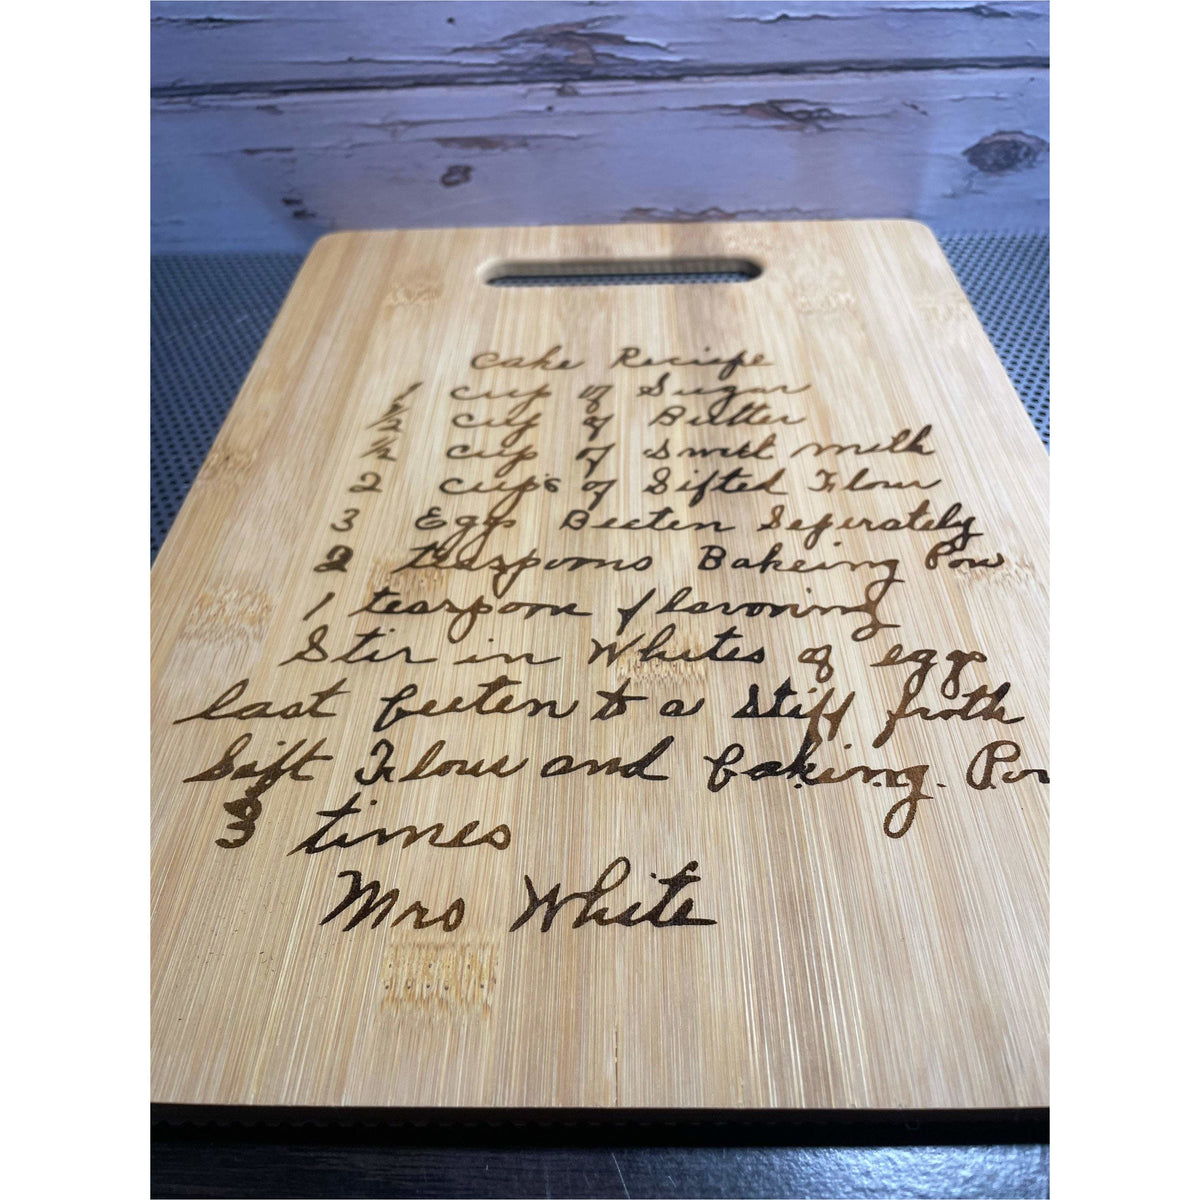 Cake Reciepe
1 cup of Sugar
1/2 cup of Butter
1/2 cup of Sweet milk
2 cups of Sifted Flour
3 Eggs Beeten Seperately
2 teaspoons Bakeing Pow
1 teaspoon flavoring
Stir in Whites of eggs
last beeten to a stiff froth
Sift Flour and baking. Pow
3 times
Mrs White